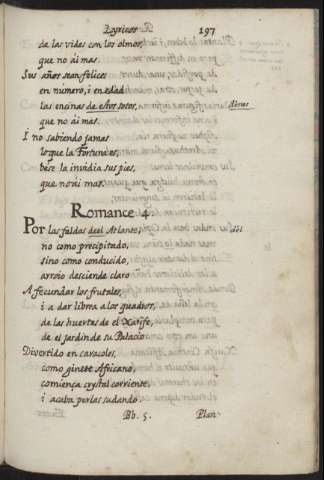 Lyricos 197
de las vides con los olmos,
que no ái mas.
Sus años sean felices
en numero, i en edad
las encinas de estos sotos,
que no ái mas.
I no sabiendo jamas
lo que la Fortuna es,
bese la invidia sus pies,
que no ái mas.
Romance 4.
Por las faldas del Atlante,
no como precipitado,
sino como conducido,
arroio desciende claro
A fecundar los frutales,
i a dar libma a los quadros,
de las huertas de el Xarife,
de el jardin de su Palacio
Divertido en caracoles,
como ginete Africano,
comiença crystal corriente,
i acaba perlas sudando.
Bb. 5. Plan-